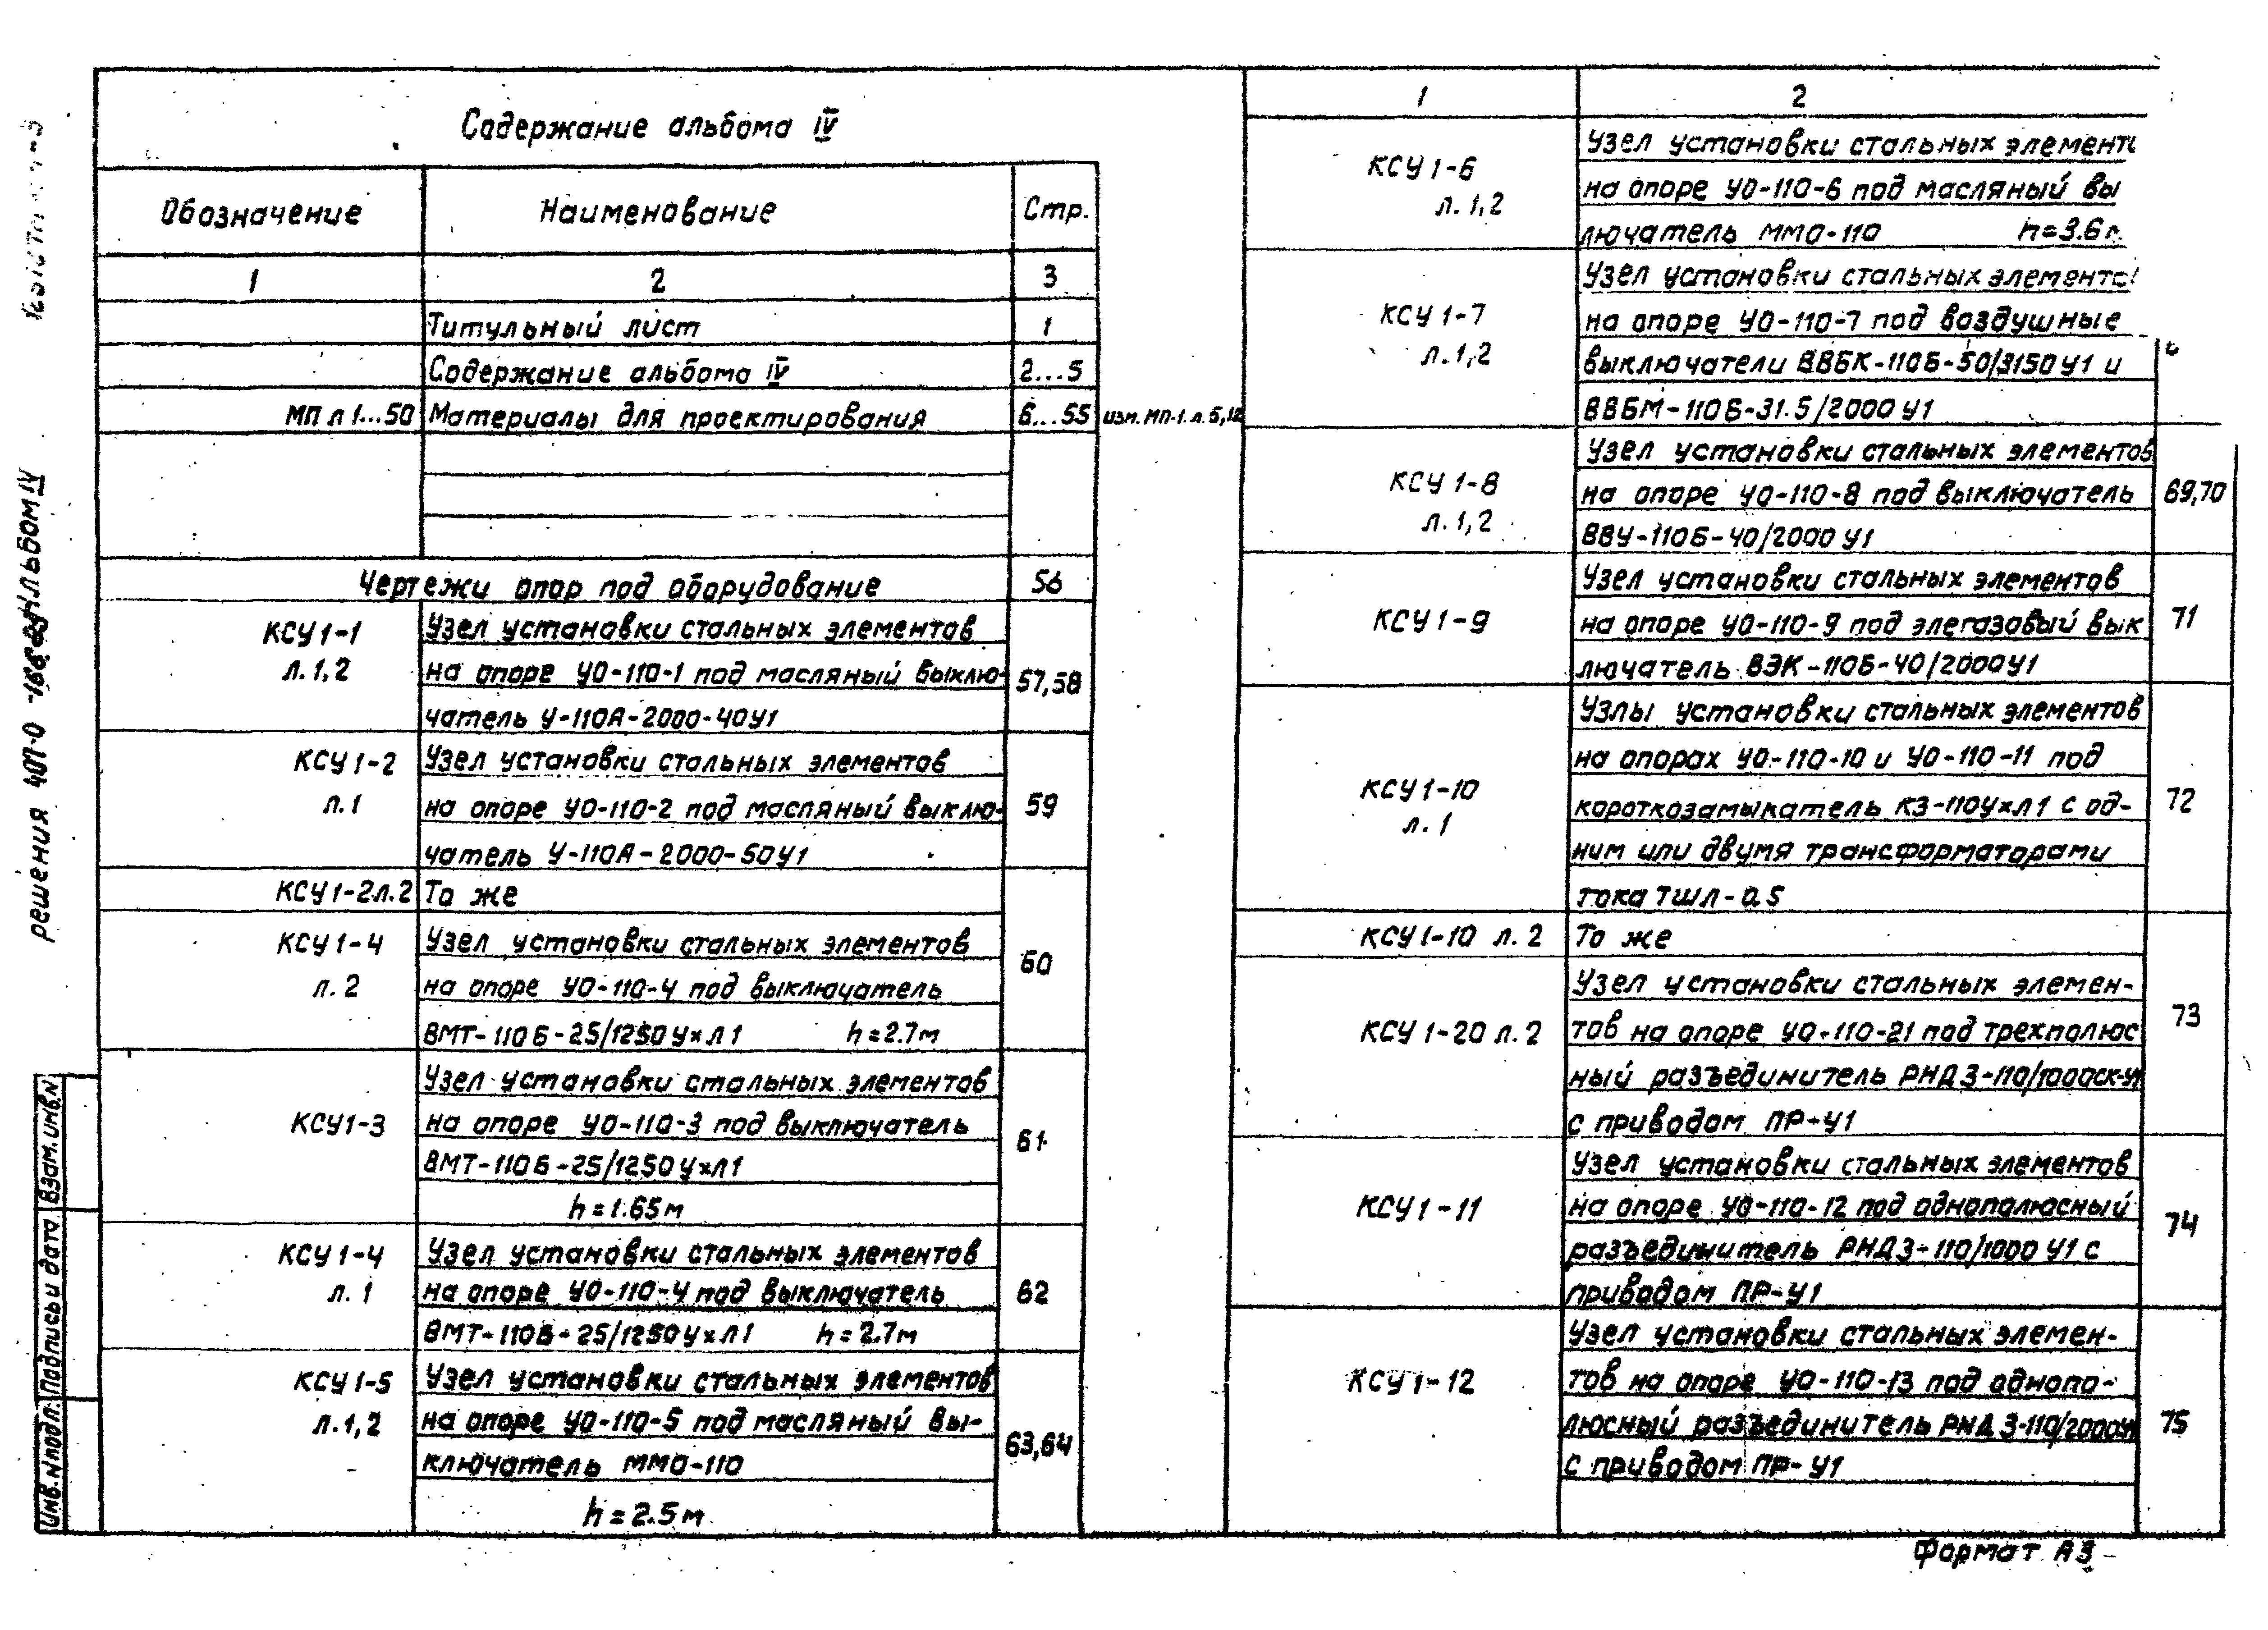 Содержание альбома IV
Обозначение Наименование Стр.
1 2 3
Титульный лист 1
Содержание альбома IV 2...5
МП л 1...50 Материалы для проектирования 6...55 изм. МП-1.л.5,12
Чертежи опор под оборудование 56
КСУ 1-1 Узел установки стальных элементов
л. 1,2 на опоре УО-110-1 под масляный выклю- 57,58
чатель У-110А-2000-40У1
КСУ 1-2 Узел установки стальных элементов
л.1 на опоре УО-110-2 под масляный выклю- 59
чатель У-110А-2000-50У1
КСУ 1-2л.2 То же
КСУ 1-4 Узел установки стальных элементов
60
л. 2 на опоре УО-110-4 под выключатель
ВМТ-110Б-25/1250УхЛ1 h=2.7м
Узел установки стальных элементов
КСУ1-3 на опоре УО-110-3 под выключатель 61
ВМТ-110Б-25/1250УхЛ1
h=1.65м
КСУ 1-4 Узел установки стальных элементов
л. 1 на опоре УО-110-4 под выключатель 62
ВМТ-110Б-25/1250УхЛ1 h=2.7м
КСУ 1-5 Узел установки стальных элементов
л.1,2 на опоре УО-110-5 под масляный вы-
ключатель ММО-110 63,64
h=2.5м
1 2
Узел установки стальных элемент
КСУ 1-6
на опоре УО-110-6 под масляный вы
л. 1,2
лючатель ММО-110 h=3.6
Узел установки стальных элементо
КСУ 1-7 на опоре УО-110-7 под воздушные
л.1,2 выключатели ВВБК-110Б-50/3150У1 и
ВВБМ-110Б-31.5/2000У1
Узел установки стальных элементов
КСУ 1-8 на опоре УО-110-8 под выключатель 69,70
л.1,2 ВВУ-110Б-40/2000У1
Узел установки стальных элементов
КСУ 1-9 на опоре УО-110-9 под элегазовый вык 71
лючатель ВЭК-110Б-40/2000У1
Узлы установки стальных элементов
на опорах УО-110-10 и УО-110-11 под
КСУ 1-10 короткозамыкатель КЗ-110УхЛ1 с од- 72
л.1 ним или двумя трансформаторами
тока ТШЛ-0.5
КСУ 1-10 л. 2 То же
Узел установки стальных элемен-
КСУ 1-20 л.2 тов на опоре УО-110-21 под трехполюс 73
ный разъединитель РНДЗ-110/1000СК-У1
с приводом ПР-У1
Узел установки стальных элементов
КСУ 1-11 на опоре УО-110-12 под однополюсный 74
разъединитель РНДЗ-110/1000 У1 с
приводом ПР-У1
Узел установки стальных элемен-
КСУ 1-12 тов на опоре УО-110-13 под однопо-
люсный разъединитель РНДЗ-110/2000У1 75
с приводом ПР-У1
Формат А3
решения 407-0 Альбом IV
Инв.N подл. Подпись и дата Взам.инв.N